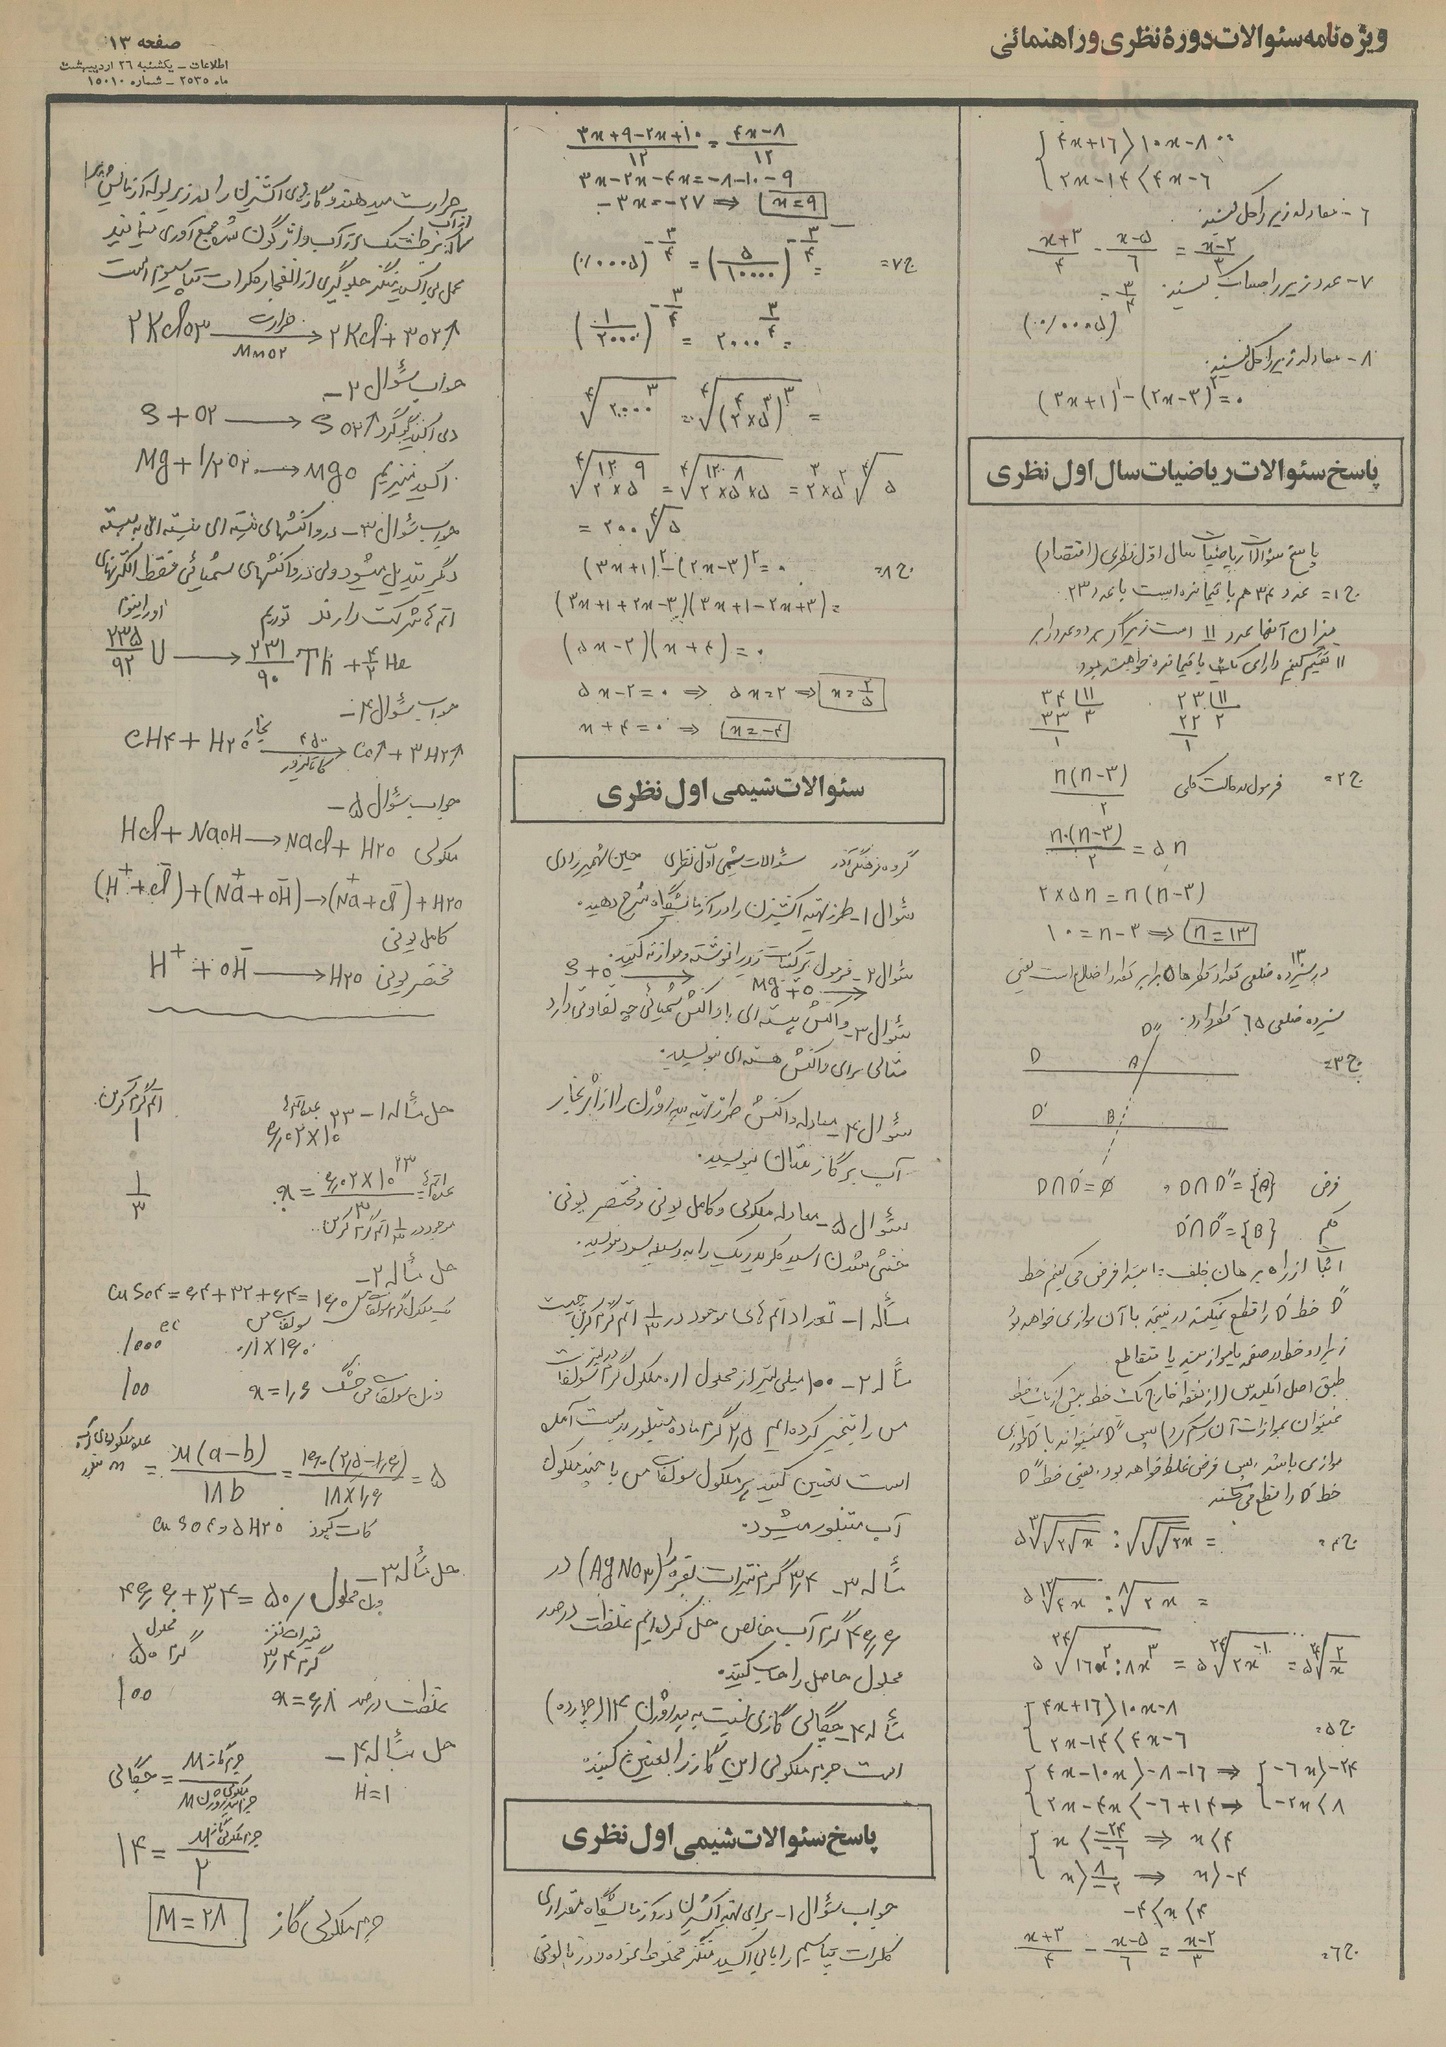 ویژه نامه سئوالات دورهٔ نظری و راهنمائی
صفحه ۱۳
اطلاعات – یکشنبه ۲۶ اردیبهشت
ماه ۲۵۳۵ – شماره ۱۵۰۱۰
۴x+۱۶ > ۱۰x-۸
۲x-۱۴ < ۴x-۶
۶- معادله زیر را حل کنید
(x+۳)/۴ - (x-۵)/۶ = (x-۲)/۳
۷- عدد زیر را حساب کنید
(۰/۰۰۰۵)^(-۳/۴) =
۸- معادله زیر را حل کنید
(۳x+۱)^۲ - (۲x-۳)^۲ = ۰
پاسخ سئوالات ریاضیات سال اول نظری
پاسخ سئوالات ریاضیات سال اول نظری (اقتصاد)
ج۱= عدد ۳۴ هم باقیمانده است با عدد ۲۳
میزان آنها عدد ۱۱ است زیرا اگر هر دو عدد را بر
۱۱ تقسیم کنیم دارای یک باقیمانده خواهند بود
۳۴ ۱۱ ۲۳ ۱۱
۳۳ ۳ ۲۲ ۲
۱ ۱
ج۲= فرمول در حالت کلی n(n-۳)/۲
n(n-۳)/۲ = ۵n
۲×۵n = n(n-۳)
۱۰ = n-۳ ⇒ n=۱۳
در سیزده ضلعی تعداد قطرها ۵ برابر تعداد اضلاع است یعنی
سیزده ضلعی ۶۵ قطر دارد.
ج۳= D" D A
D' B
فرض D∩D'=∅ , D∩D"={A}
حکم D'∩D"={B}
اثبات از راه برهان خلف: ابتدا فرض می‌کنیم خط
D" خط D' را قطع نمیکند در نتیجه با آن موازی خواهد بود
زیرا دو خط در صفحه یا موازیند یا متقاطع
طبق اصل اقلیدس (از نقطه خارج یک خط بیش از یک خط
نمیتوان بموازات آن رسم کرد) پس D" نمیتواند با D'
موازی باشد پس فرض غلط خواهد بود، یعنی خط D"
خط D' را قطع می‌کند
ج۴= ۵∛√(۲√x) : √√√۲x =
۵ ¹²√۴x : ⁸√۲x =
۵ ²⁴√(۱۶x^۲:۸x^۳) = ۵ ²⁴√(۲x^-۱) = ۵ ²⁴√(۲/x)
ج۵= ۴x+۱۶ > ۱۰x-۸
۲x-۱۴ < ۴x-۶
۴x-۱۰x > -۸-۱۶ ⇒ -۶x > -۲۴
۲x-۴x < -۶+۱۴ ⇒ -۲x < ۸
x < -۲۴/-۶ ⇒ x < ۴
x > ۸/-۲ ⇒ x > -۴
-۴ < x < ۴
ج۶= (x+۳)/۴ - (x-۵)/۶ = (x-۲)/۳
(۳x+۹-۲x+۱۰)/۱۲ = (۴x-۸)/۱۲
۳x-۲x-۴x = -۸-۱۰-۹
-۳x = -۲۷ ⇒ x=۹
ج۷= (۰/۰۰۰۵)^(-۳/۴) = (۵/۱۰۰۰۰)^(-۳/۴) =
(۱/۲۰۰۰)^(-۳/۴) = ۲۰۰۰^(۳/۴) =
⁴√(۲۰۰۰^۳) = ⁴√((۲^۴×۵^۳)^۳) =
⁴√(۲^۱۲×۵^۹) = ⁴√(۲^۱۲×۵^۸×۵) = ۲^۳×۵^۲ ⁴√۵
= ۲۰۰ ⁴√۵
ج۸= (۳x+۱)^۲ - (۲x-۳)^۲ = ۰
(۳x+۱+۲x-۳)(۳x+۱-۲x+۳) =
(۵x-۲)(x+۴) = ۰
۵x-۲=۰ ⇒ ۵x=۲ ⇒ x=۲/۵
x+۴=۰ ⇒ x=-۴
سئوالات شیمی اول نظری
گروه فرهنگی آذر سئوالات شیمی اول نظری
سئوال ۱- طرز تهیه اکسیژن را در آزمایشگاه شرح دهید.
سئوال ۲- فرمول ترکیبات زیر را نوشته و موازنه کنید.
S+O → Mg+O →
سئوال ۳- واکنش هسته‌ای با واکنش شیمیائی چه تفاوتی دارد
مثالی برای واکنش هسته‌ای بنویسید.
سئوال ۴- معادله واکنش طرز تهیه هیدروژن را از اثر بخار
آب بر گاز متان بنویسید.
سئوال ۵- معادله ملکولی و کامل یونی و مختصر یونی
خنثی شدن اسید کلریدریک را بوسیله سود بنویسید.
مسأله ۱- تعداد اتم‌های موجود در ۱/۳ اتم گرم کربن چیست
مسأله ۲- ۱۰۰ میلی لیتر از محلول ۰/۱ ملکول گرم در لیتر سولفات
مس را تبخیر کرده‌ایم ۲/۵ گرم ماده متبلور بدست آمده
است تعیین کنید هر ملکول سولفات مس با چند ملکول
آب متبلور میشود.
مسأله ۳- ۳/۴ گرم نیترات نقره (AgNO۳) را در
۴۶/۶ گرم آب خالص حل کرده‌ایم غلظت درصد
محلول حاصل را حساب کنید.
مسأله ۴- چگالی گازی نسبت به هیدروژن ۱۴ (چهارده)
است جرم ملکولی این گاز را تعیین کنید.
پاسخ سئوالات شیمی اول نظری
جواب سئوال ۱- برای تهیه اکسیژن در آزمایشگاه مقداری
کلرات پتاسیم را با بی‌اکسید منگنز مخلوط نموده و در
حرارت میدهند و گاز اکسیژن را در زیر لوله آزمایش پر از آب
که در طشتک آب واژگون شده جمع آوری مینمایند
عمل بی‌اکسید منگنز جلوگیری از انفجار کلرات پتاسیم است
۲KClO۳ حرارت MnO۲ → ۲KCl + ۳O۲↑
جواب سئوال ۲-
دی‌اکسید گوگرد S + O۲ → SO۲↑
اکسید منیزیم Mg + ۱/۲O۲ → MgO
جواب سئوال ۳- در واکنشهای هسته‌ای هسته‌ای به هسته
دیگر تبدیل میشود ولی در واکنشهای شیمیائی فقط الکترونهای
اتم‌ها شرکت دارند توریم اورانیوم
۲۳۵/۹۲ U → ۲۳۱/۹۰ Th + ۴/۲ He
جواب سئوال ۴-
CH۴ + H۲O بخار ۴۵۰ کاتالیزور → CO↑ + ۳H۲↑
جواب سئوال ۵-
ملکولی HCl + NaOH → NaCl + H۲O
(H⁺+Cl⁻)+(Na⁺+OH⁻) → (Na⁺+Cl⁻)+H۲O
کامل یونی
مختصر یونی H⁺ + OH⁻ → H۲O
حل مسأله ۱- عده اتم‌ها اتم گرم کربن
۶/۰۲×۱۰^۲۳ ۱
عده اتم‌های x = ۶/۰۲×۱۰^۲۳/۳ ۱/۳
موجود در ۱/۳ اتم گرم کربن
حل مسأله ۲-
یک ملکول گرم سولفات مس CuSO۴ = ۶۴+۳۲+۶۴ = ۱۶۰
سولفات مس
۰/۱×۱۶۰ ۱۰۰۰cc
وزن سولفات مس خشک x=۱/۶ ۱۰۰
M(a-b)/۱۸b = ۱۶۰(۲/۵-۱/۶)/۱۸×۱/۶ = ۵
کات کبود CuSO۴,۵H۲O
حل مسأله ۳-
وزن محلول ۴۶/۶+۳/۴ = ۵۰
نیترات نقره محلول
۳/۴ گرم ۵۰ گرم
غلظت درصد x=۶/۸ ۱۰۰
حل مسأله ۴-
H=۱
چگالی = جرم گاز M / جرم ملکولی هیدروژن M
۱۴ = جرم ملکولی گاز M / ۲
جرم ملکولی گاز M=۲۸